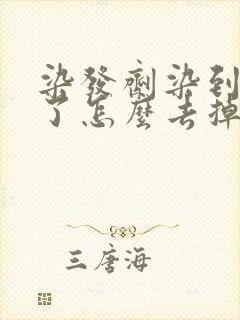 染發劑染到
了怎麼去掉
三唐海